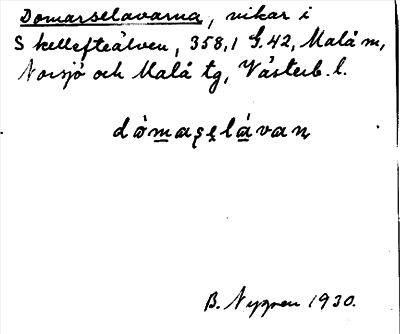 Domarselavarna, vikar i
Skellefteälven, 358,1 G.42, Malå m,
Norsjö och Malå tg, Västerb. l.
dòmaşe̥lávaṇ
B. Nygren 1930.